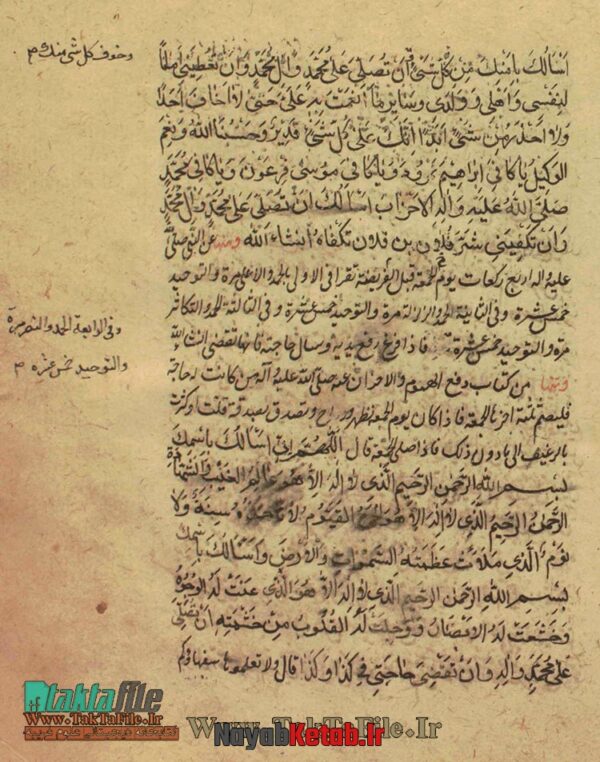 وخوف كل شئ منك م
اسالك بامنك من كل شئ ان تصلى على محمد وال محمد وان تعطينى امانا
لنفسى واهلى وولدى وسائر ما انعمت به على حتى لا اخاف احدا
ولا احذر من شئ ابدا انك على كل شئ قدير وحسبنا الله ونعم
الوكيل يا كافى ابراهيم نمرود ويا كافى موسى فرعون ويا كافى محمد
صلى الله عليه واله الاحزاب اسالك ان تصلى على محمد وال محمد
وان تكفينى شر فلان بن فلان تكفاه انشاء الله ومنه عن النبى صلى الله
عليه واله اربع ركعات يوم الجمعة قبل الفريضة تقرا فى الاولى الحمد والاعلى مرة والتوحيد
خمس عشرة وفى الثانية الحمد والزلزلة مرة والتوحيد خمس عشرة وفى الثالثة الحمد والتكاثر
مرة والتوحيد خمس عشرة فاذا فرغ رفع يديه وسال حاجته فانها تقضى انشاء الله
وفى الرابعة الحمد والنصر مرة
والتوحيد خمس عشره م
ومنها من كتاب دفع الهموم والاحزان عنه صلى الله عليه واله من كانت له حاجة
فليصم ثلثة اخرها الجمعة فاذا كان يوم الجمعة تطهر وراح وتصدق بصدقة قلت او كثرت
بالرغيف الى ما دون ذلك فاذا صلى الجمعة قال اللهم انى اسالك باسمك
بسم الله الرحمن الرحيم الذى لا اله الا هو عالم الغيب والشهادة
الرحمن الرحيم الذى لا اله الا هو الحى القيوم لا تاخذه سنة ولا
نوم الذى ملات عظمته السموات والارض واسالك باسمك
بسم الله الرحمن الرحيم الذى لا اله الا هو الذى عنت له الوجوه
وخشعت له الابصار ووجلت له القلوب من خشيته ان تصلى
على محمد واله وان تقضى حاجتى فى كذا وكذا قال ولا تعلموها سفهاءكم
taktafile
Www.TakTaFile.Ir
Www.TakTaFile.Ir
NayabKetab.ir